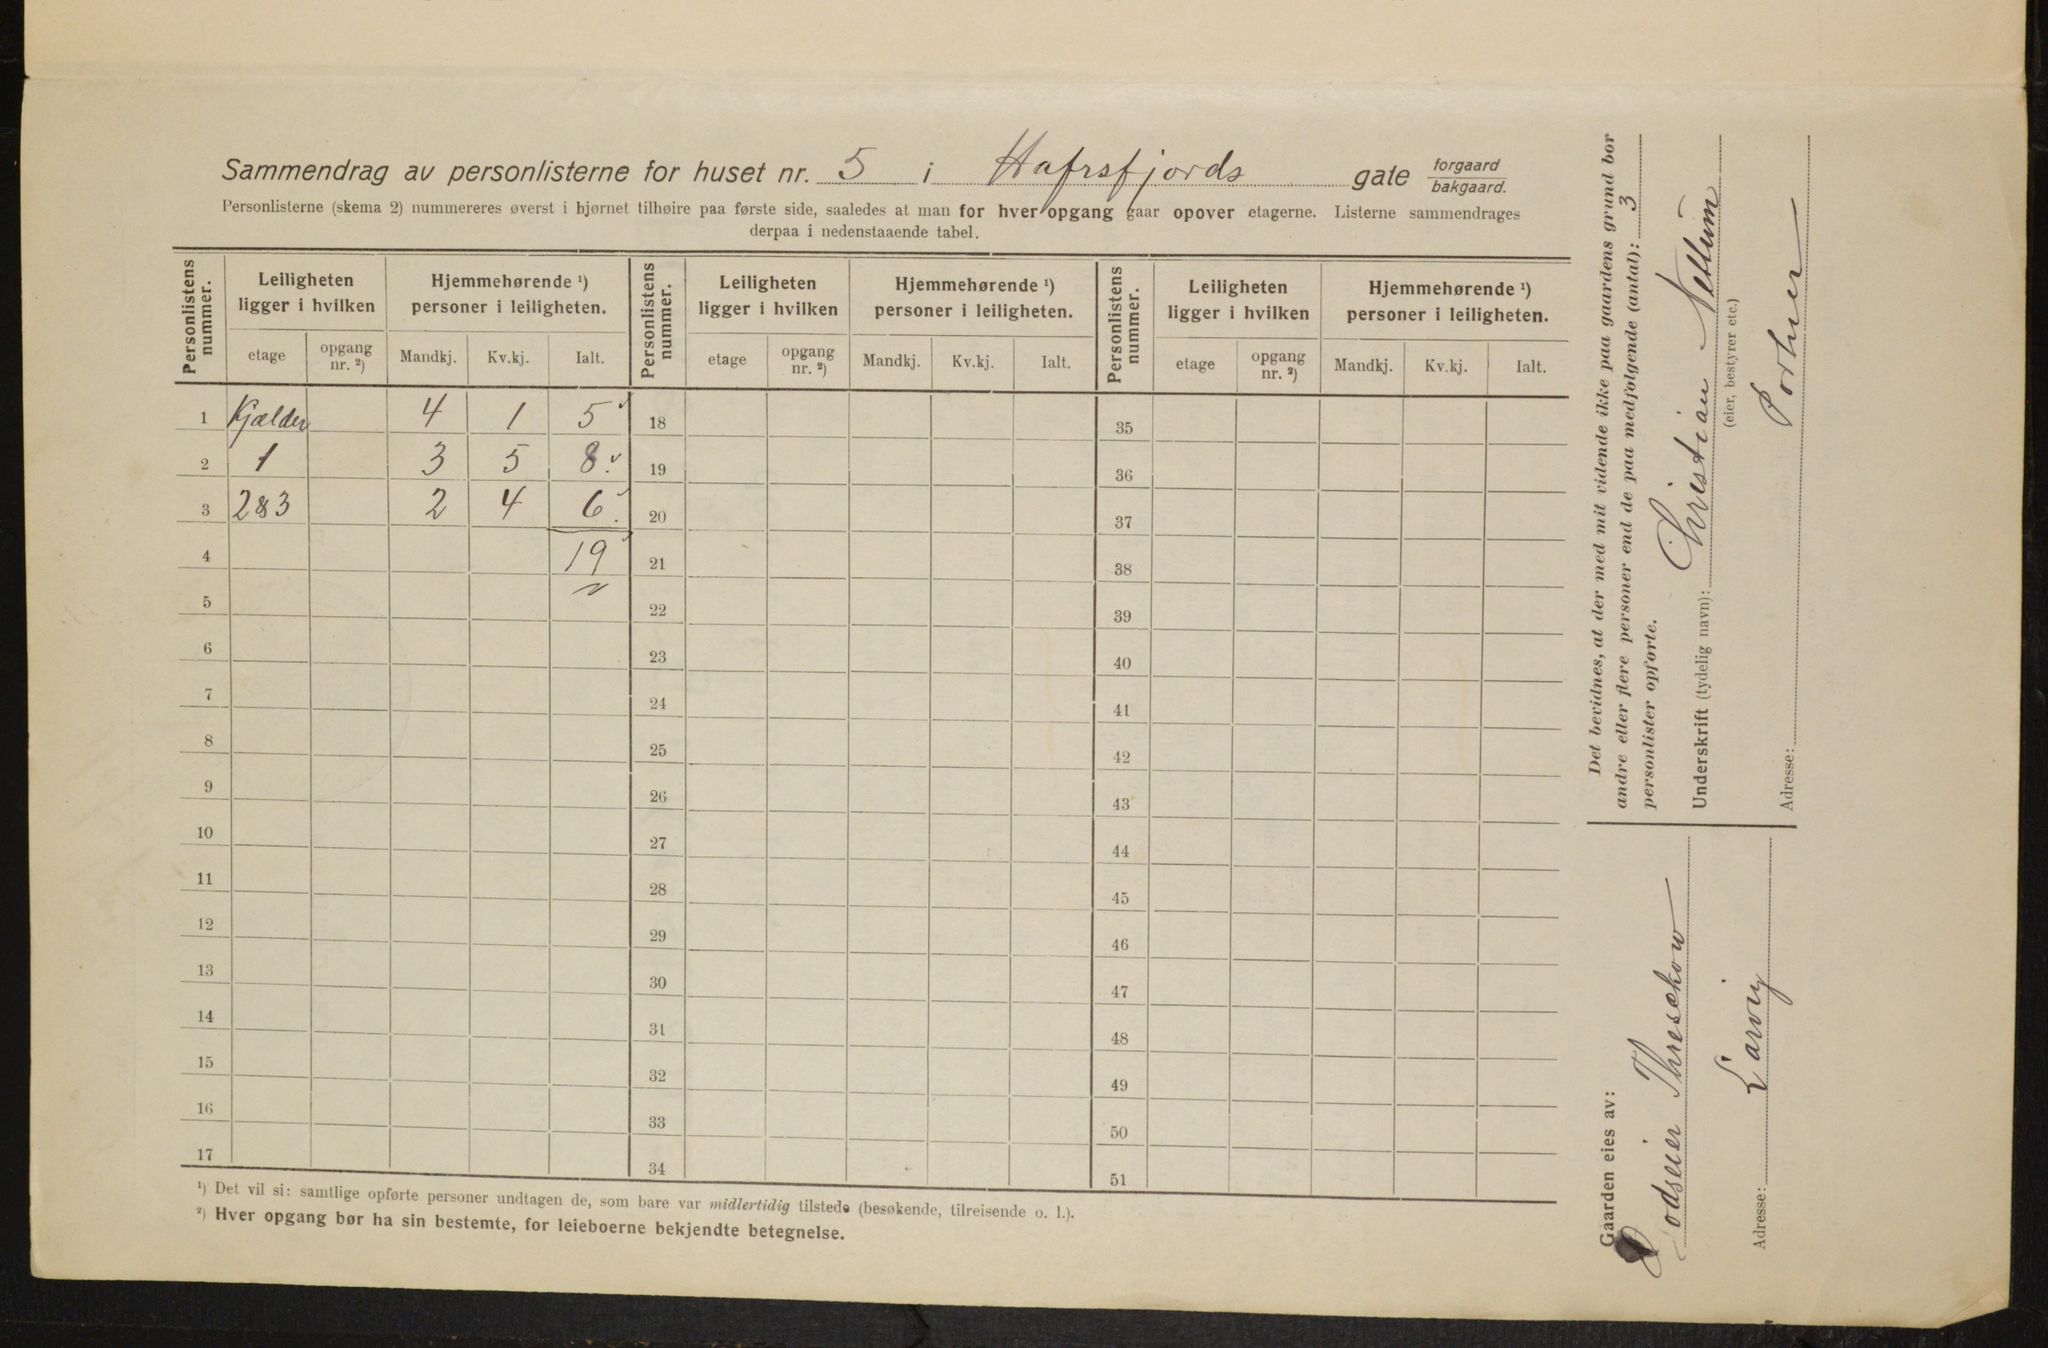 Sammendrag av personlisterne for huset nr. 5 i Hafrsfjords gate forgaard bakgaard.
Personlisterne (skema 2) nummereres øverst i hjørnet tilhøire paa første side, saaledes at man for hver opgang gaar opover etagerne. Listerne sammendrages
derpaa i nedenstaaende tabel.
Personlistens nummer. Leiligheten ligger i hvilken Hjemmehørende ¹) personer i leiligheten. Personlistens nummer. Leiligheten ligger i hvilken Hjemmehørende ¹) personer i leiligheten. Personlistens nummer. Leiligheten ligger i hvilken Hjemmehørende ¹) personer i leiligheten.
etage opgang nr. ²) Mandkj. Kv.kj. Ialt. etage opgang nr. ²) Mandkj. Kv.kj. Ialt. etage opgang nr. ²) Mandkj. Kv.kj. Ialt.
1 Kjælder 4 1 5 18 35
2 1 3 5 8 19 36
3 2&3 2 4 6 20 37
4 19 21 38
5 22 39
6 23 40
7 24 41
8 25 42
9 26 43
10 27 44
11 28 45
12 29 46
13 30 47
14 31 48
15 32 49
16 33 50
17 34 51
¹) Det vil si: samtlige opførte personer undtagen de, som bare var midlertidig tilstede (besøkende, tilreisende o. l.).
²) Hver opgang bør ha sin bestemte, for leieboerne bekjendte betegnelse.
Det bevidnes, at der med mit vidende ikke paa gaardens grund bor
andre eller flere personer end de paa medfølgende (antal): 3
personlister opførte.
Underskrift (tydelig navn): Christian
(eier, bestyrer etc.)
Adresse: Portner
Gaarden eies av:
Godseier Threschow
Adresse: Larvig